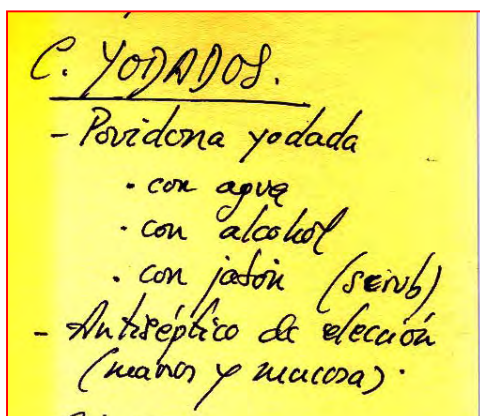 C. YODADOS.
- Povidona yodada
· con agua
· con alcohol
· con jabón (scrub)
- Antiséptico de elección
(manos y mucosa).